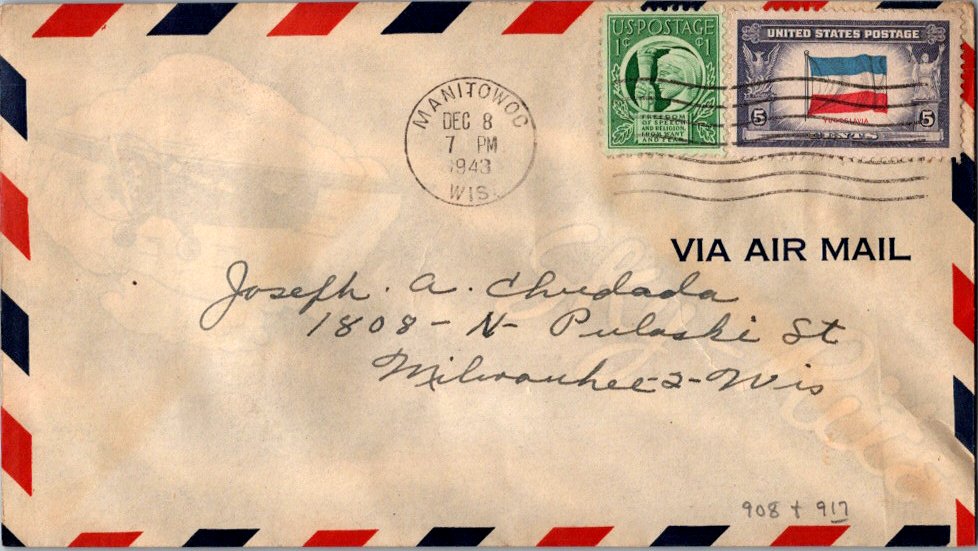 U.S. POSTAGE
1¢ ¢1
FREEDOM
OF SPEECH
AND RELIGION,
FROM WANT
AND FEAR
UNITED STATES POSTAGE
YUGOSLAVIA
5 5
CENTS
MANITOWOC
DEC 8
7 PM
1943
WIS.
VIA AIR MAIL
Joseph. A. Chudada
1808-N- Pulaski St
Milwaukee-2-Wis
908 + 917